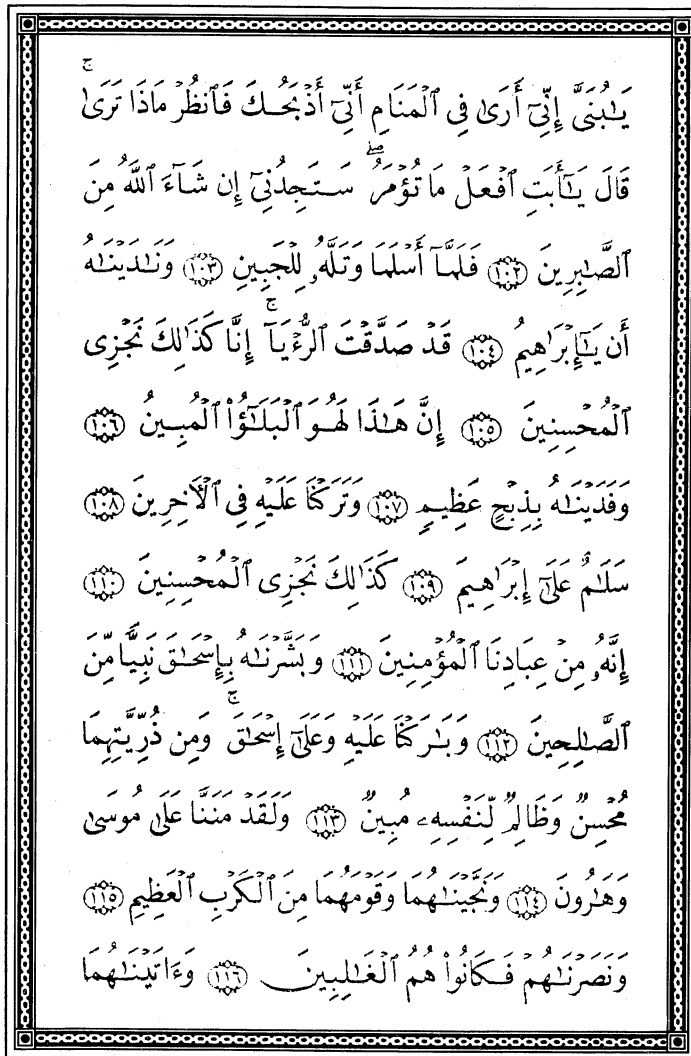 يَـٰبُنَىَّ إِنِّىٓ أَرَىٰ فِى ٱلْمَنَامِ أَنِّىٓ أَذْبَحُكَ فَٱنظُرْ مَاذَا تَرَىٰ ۚ
قَالَ يَـٰٓأَبَتِ ٱفْعَلْ مَا تُؤْمَرُ ۖ سَتَجِدُنِىٓ إِن شَآءَ ٱللَّهُ مِنَ
ٱلصَّـٰبِرِينَ ١٠٢ فَلَمَّآ أَسْلَمَا وَتَلَّهُۥ لِلْجَبِينِ ١٠٣ وَنَـٰدَيْنَـٰهُ
أَن يَـٰٓإِبْرَٰهِيمُ ١٠٤ قَدْ صَدَّقْتَ ٱلرُّءْيَآ ۚ إِنَّا كَذَٰلِكَ نَجْزِى
ٱلْمُحْسِنِينَ ١٠٥ إِنَّ هَـٰذَا لَهُوَ ٱلْبَلَـٰٓؤُا۟ ٱلْمُبِينُ ١٠٦
وَفَدَيْنَـٰهُ بِذِبْحٍ عَظِيمٍ ١٠٧ وَتَرَكْنَا عَلَيْهِ فِى ٱلْـَٔاخِرِينَ ١٠٨
سَلَـٰمٌ عَلَىٰٓ إِبْرَٰهِيمَ ١٠٩ كَذَٰلِكَ نَجْزِى ٱلْمُحْسِنِينَ ١١٠
إِنَّهُۥ مِنْ عِبَادِنَا ٱلْمُؤْمِنِينَ ١١١ وَبَشَّرْنَـٰهُ بِإِسْحَـٰقَ نَبِيًّا مِّنَ
ٱلصَّـٰلِحِينَ ١١٢ وَبَـٰرَكْنَا عَلَيْهِ وَعَلَىٰٓ إِسْحَـٰقَ ۚ وَمِن ذُرِّيَّتِهِمَا
مُحْسِنٌ وَظَالِمٌ لِّنَفْسِهِۦ مُبِينٌ ١١٣ وَلَقَدْ مَنَنَّا عَلَىٰ مُوسَىٰ
وَهَـٰرُونَ ١١٤ وَنَجَّيْنَـٰهُمَا وَقَوْمَهُمَا مِنَ ٱلْكَرْبِ ٱلْعَظِيمِ ١١٥
وَنَصَرْنَـٰهُمْ فَكَانُوا۟ هُمُ ٱلْغَـٰلِبِينَ ١١٦ وَءَاتَيْنَـٰهُمَا